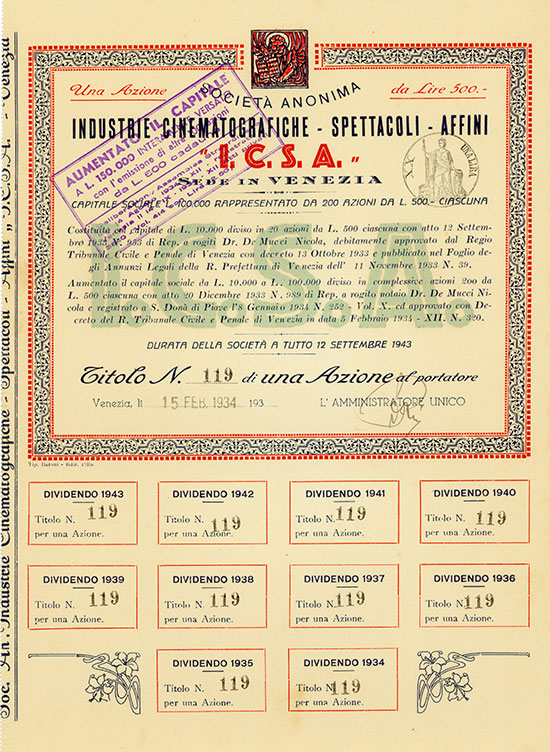 Una Azione
da Lire 500.-
SOCIETÀ ANONIMA
INDUSTRIE CINEMATOGRAFICHE - SPETTACOLI - AFFINI
" I.C.S.A. "
SEDE IN VENEZIA
CAPITALE SOCIALE L. 100.000 RAPPRESENTATO DA 200 AZIONI DA L. 500.- CIASCUNA
AUMENTATO IL CAPITALE
A L. 150.000 INTERAM. VERSATO
con l'emissione di altre azioni
da L. 500 cadauna
XX UNA LIRA
Costituita con capitale di L. 10.000 diviso in 20 azioni da L. 500 ciascuna con atto 12 Settem-
bre 1933 953 di Rep. a rogiti Dr. De Mucci Nicola, debitamente approvato dal Regio
Tribunale Civile e Penale di Venezia con decreto 13 Ottobre 1933 e pubblicato nel Foglio de-
gli Annunzi Legali della R. Prefettura di Venezia dell' 11 Novembre 1933 N. 39.
Aumentato il capitale sociale da L. 10.000 a L. 100.000 diviso in complessive azioni 200 da
L. 500 ciascuna con atto 20 Dicembre 1933 N. 989 di Rep. a rogito notaio Dr. De Mucci Ni-
cola e registrato a S. Donà di Piave l'8 Gennaio 1934 N. 252 - Vol. X. ed approvato con De-
creto del R. Tribunale Civile e Penale di Venezia in data 5 Febbraio 1934 - XII. N. 320.
DURATA DELLA SOCIETÀ A TUTTO 12 SETTEMBRE 1943
Titolo N. 119 di una Azione al portatore
Venezia, li 15 FEB. 1934 193
L' AMMINISTRATORE UNICO
DIVIDENDO 1943
Titolo N. 119
per una Azione.
DIVIDENDO 1942
Titolo N. 119
per una Azione.
DIVIDENDO 1941
Titolo N. 119
per una Azione.
DIVIDENDO 1940
Titolo N. 119
per una Azione.
DIVIDENDO 1939
Titolo N. 119
per una Azione.
DIVIDENDO 1938
Titolo N. 119
per una Azione.
DIVIDENDO 1937
Titolo N. 119
per una Azione.
DIVIDENDO 1936
Titolo N. 119
per una Azione.
DIVIDENDO 1935
Titolo N. 119
per una Azione.
DIVIDENDO 1934
Titolo N. 119
per una Azione.
Soc. An. Industrie Cinematografiche - Spettacoli - Affini "I.C.S.A." - Venezia